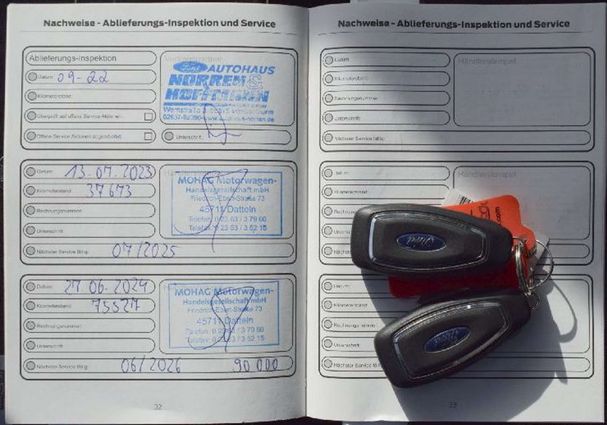 Nachweise - Ablieferungs-Inspektion und Service
Ablieferungs-Inspektion
Datum 09-22
Kilometerstand
Unterschrift
Ford AUTOHAUS
NORREN &
HOFFMANN
Datum 13.07.2023
Kilometerstand 37673
Rechnungsnummer
Unterschrift
Nächster Service fällig: 07/2025
MOHAG Motorwagen-
Handelsgesellschaft mbH
Friedrich-Ebert-Straße 73
45711 Datteln
Telefon: 0 23 63 / 3 79 00
Telefax: 0 23 63 / 3 52 15
Datum 27.06.2024
Kilometerstand 75527
Rechnungsnummer
Unterschrift
Nächster Service fällig: 06/2026 90 000
MOHAG Motorwagen-
Handelsgesellschaft mbH
Friedrich-Ebert-Straße 73
45711 Datteln
Telefon: 0 23 63 / 3 79 00
Telefax: 0 23 63 / 3 52 15
32
Nachweise - Ablieferungs-Inspektion und Service
Datum
Kilometerstand
Rechnungsnummer
Unterschrift
Nächster Service fällig:
Händlerstempel
Datum
Kilometerstand
Unterschrift
Händlerstempel
Ford
Datum
Kilometerstand
Rechnungsnummer
Unterschrift
Ford
33